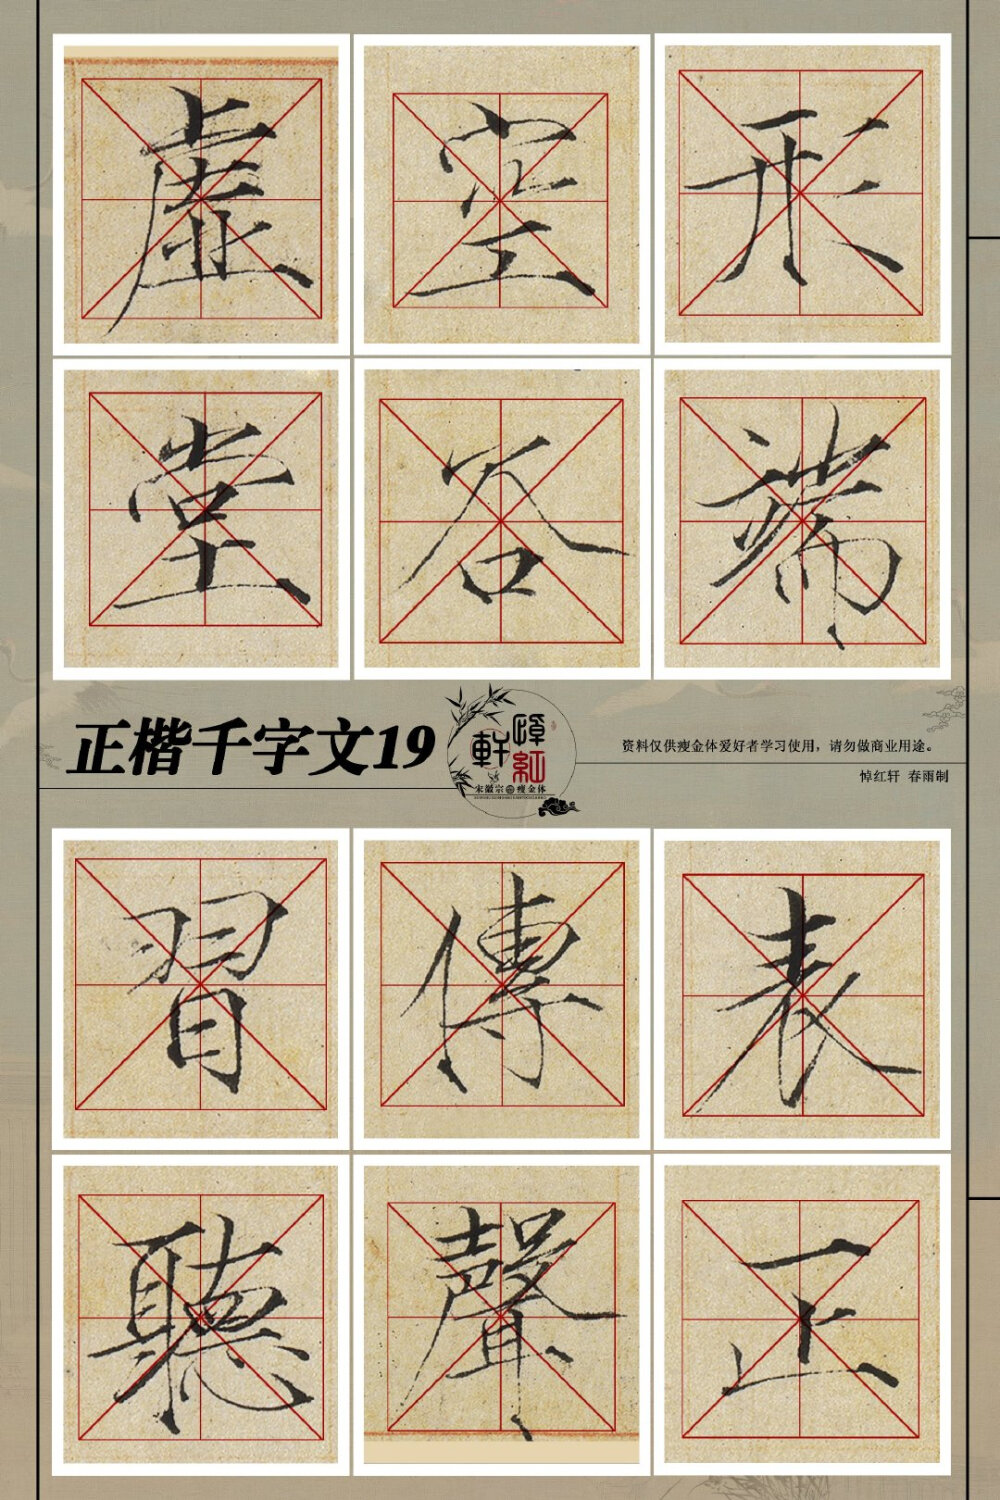 形端表正
空谷傳聲
虛堂習聽
正楷千字文19
悼紅軒
宋徽宗瘦金体
资料仅供瘦金体爱好者学习使用，请勿做商业用途。
悼红轩 春雨制